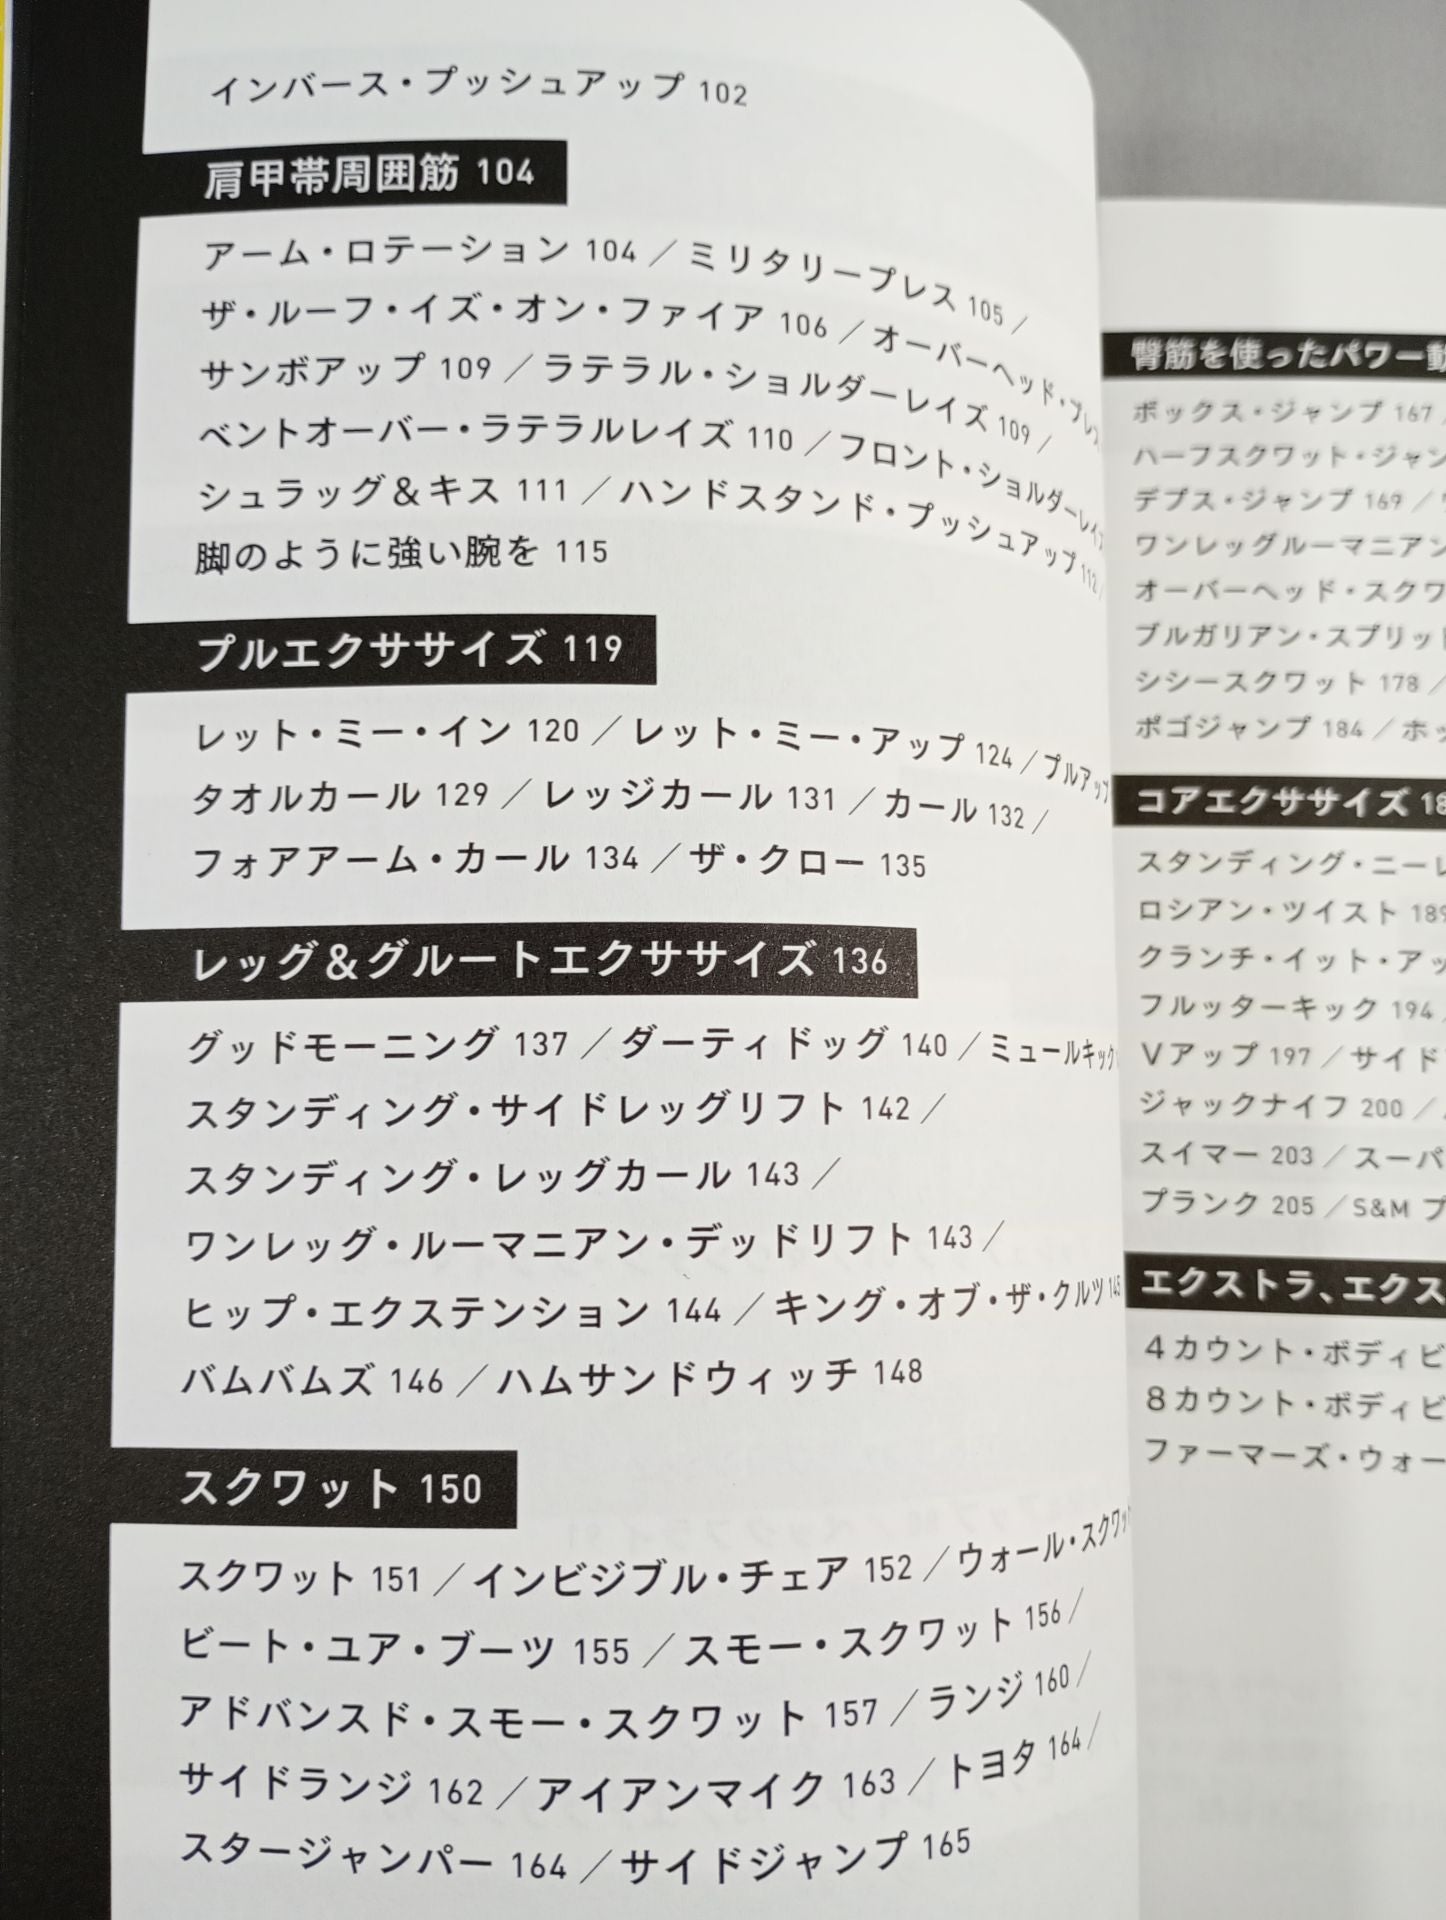 インバース・プッシュアップ 102
肩甲帯周囲筋 104
アーム・ロテーション 104 ／ミリタリープレス 105 ／
ザ・ルーフ・イズ・オン・ファイア 106 ／オーバーヘッド・プレス
サンボアップ 109 ／ラテラル・ショルダーレイズ 109 ／
ベントオーバー・ラテラルレイズ 110 ／フロント・ショルダーレイズ
シュラッグ＆キス 111 ／ハンドスタンド・プッシュアップ 112 ／
脚のように強い腕を 115
プルエクササイズ 119
レット・ミー・イン 120 ／レット・ミー・アップ 124 ／プルアップ
タオルカール 129 ／レッジカール 131 ／カール 132 ／
フォアアーム・カール 134 ／ザ・クロー 135
レッグ＆グルートエクササイズ 136
グッドモーニング 137 ／ダーティドッグ 140 ／ミュールキック
スタンディング・サイドレッグリフト 142 ／
スタンディング・レッグカール 143 ／
ワンレッグ・ルーマニアン・デッドリフト 143 ／
ヒップ・エクステンション 144 ／キング・オブ・ザ・クルツ 145
バムバムズ 146 ／ハムサンドウィッチ 148
スクワット 150
スクワット 151 ／インビジブル・チェア 152 ／ウォール・スクワット
ビート・ユア・ブーツ 155 ／スモー・スクワット 156 ／
アドバンスド・スモー・スクワット 157 ／ランジ 160 ／
サイドランジ 162 ／アイアンマイク 163 ／トヨタ 164 ／
スタージャンパー 164 ／サイドジャンプ 165
臀筋を使ったパワー
ボックス・ジャンプ 167
ハーフスクワット・ジャン
デプス・ジャンプ 169 ／
ワンレッグルーマニアン
オーバーヘッド・スクワ
ブルガリアン・スプリット
シシースクワット 178 ／
ポゴジャンプ 184 ／ホッ
コアエクササイズ 18
スタンディング・ニーレ
ロシアン・ツイスト 189
クランチ・イット・アッ
フルッターキック 194
Vアップ 197 ／サイド
ジャックナイフ 200 ／
スイマー 203 ／スーパ
プランク 205 ／S&M プ
エクストラ、エクス
4カウント・ボディビ
8カウント・ボディビ
ファーマーズ・ウォー